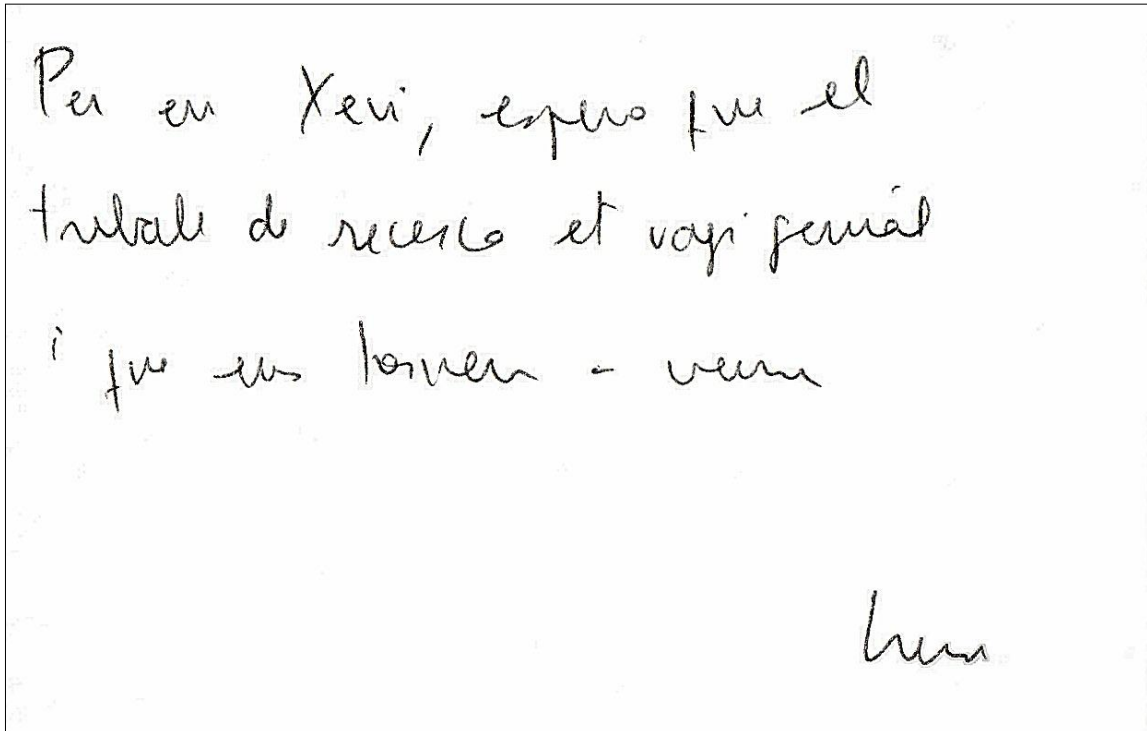 Per en Xevi, espero que el
treball de recerca et vagi genial
i que ens tornem a veure